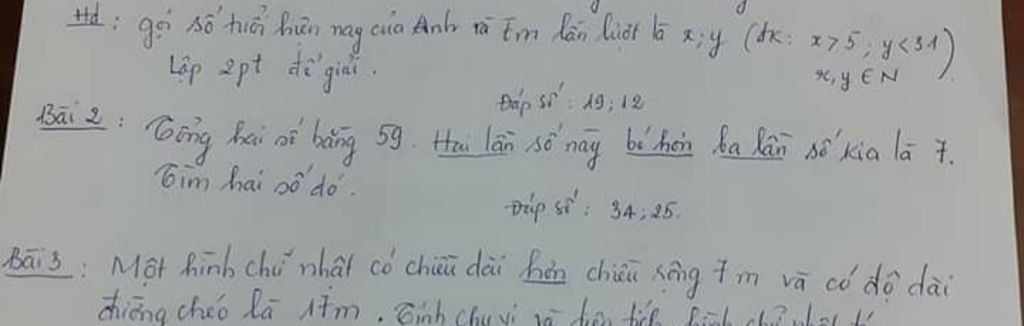 Hd: gọi số tuổi hiện nay của Anh và Em lần lượt là x; y (đk: x>5; y<31)
Lập 2pt để giải. x,y ∈ N
Đáp số: 19; 12
Bài 2: Tổng hai số bằng 59. Hai lần số này bé hơn ba lần số kia là 7.
Tìm hai số đó.
Đáp số: 34; 25.
Bài 3: Một hình chữ nhật có chiều dài hơn chiều rộng 7m và có độ dài
đường chéo là 17m. Tính chu vi và diện tích hình chữ nhật